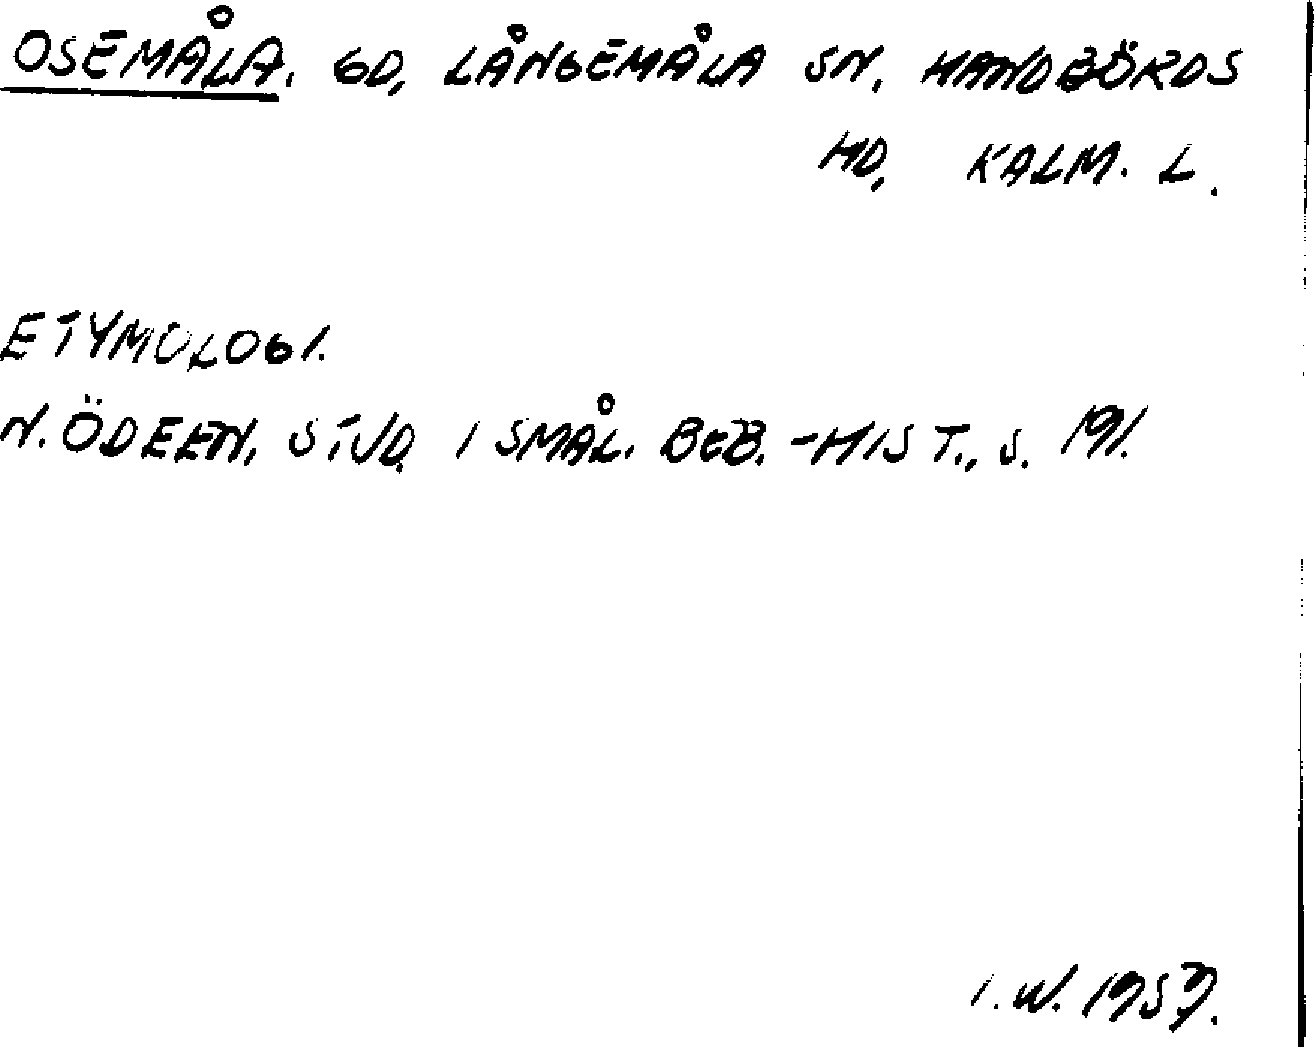 OSEMÅLA. GD, LÅNGEMÅLA SN, HANDBÖRDS
HD, KALM. L.
ETYMOLOGI.
N. ÖDEEN, STUD. I SMÅL. BEB.-HIST., S. 191.
I. W. 1957.